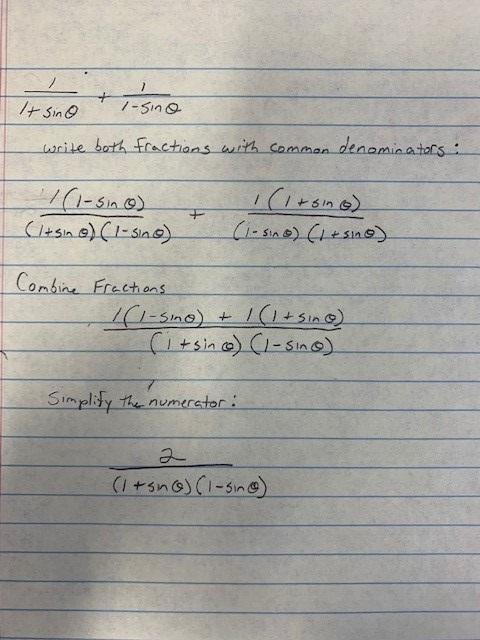 1/(1+ sinθ) + 1/(1-sinθ)
write both fractions with common denominators:
1(1-sin θ)/((1+sin θ)(1-sinθ)) + 1(1+sin θ)/((1-sin θ)(1+sinθ))
Combine Fractions
(1(1-sinθ) + 1(1+sinθ))/((1+sin θ)(1-sinθ))
Simplify the numerator:
2/((1+sinθ)(1-sinθ))